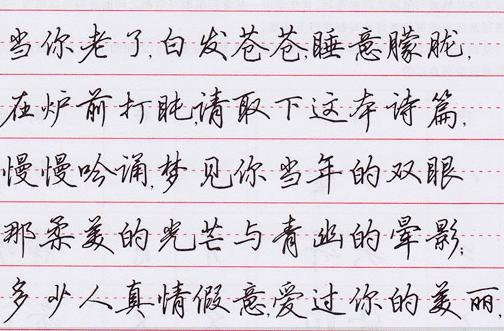 当你老了,白发苍苍,睡意朦胧,
在炉前打盹,请取下这本诗篇,
慢慢吟诵,梦见你当年的双眼
那柔美的光芒与青幽的晕影;
多少人真情假意,爱过你的美丽,